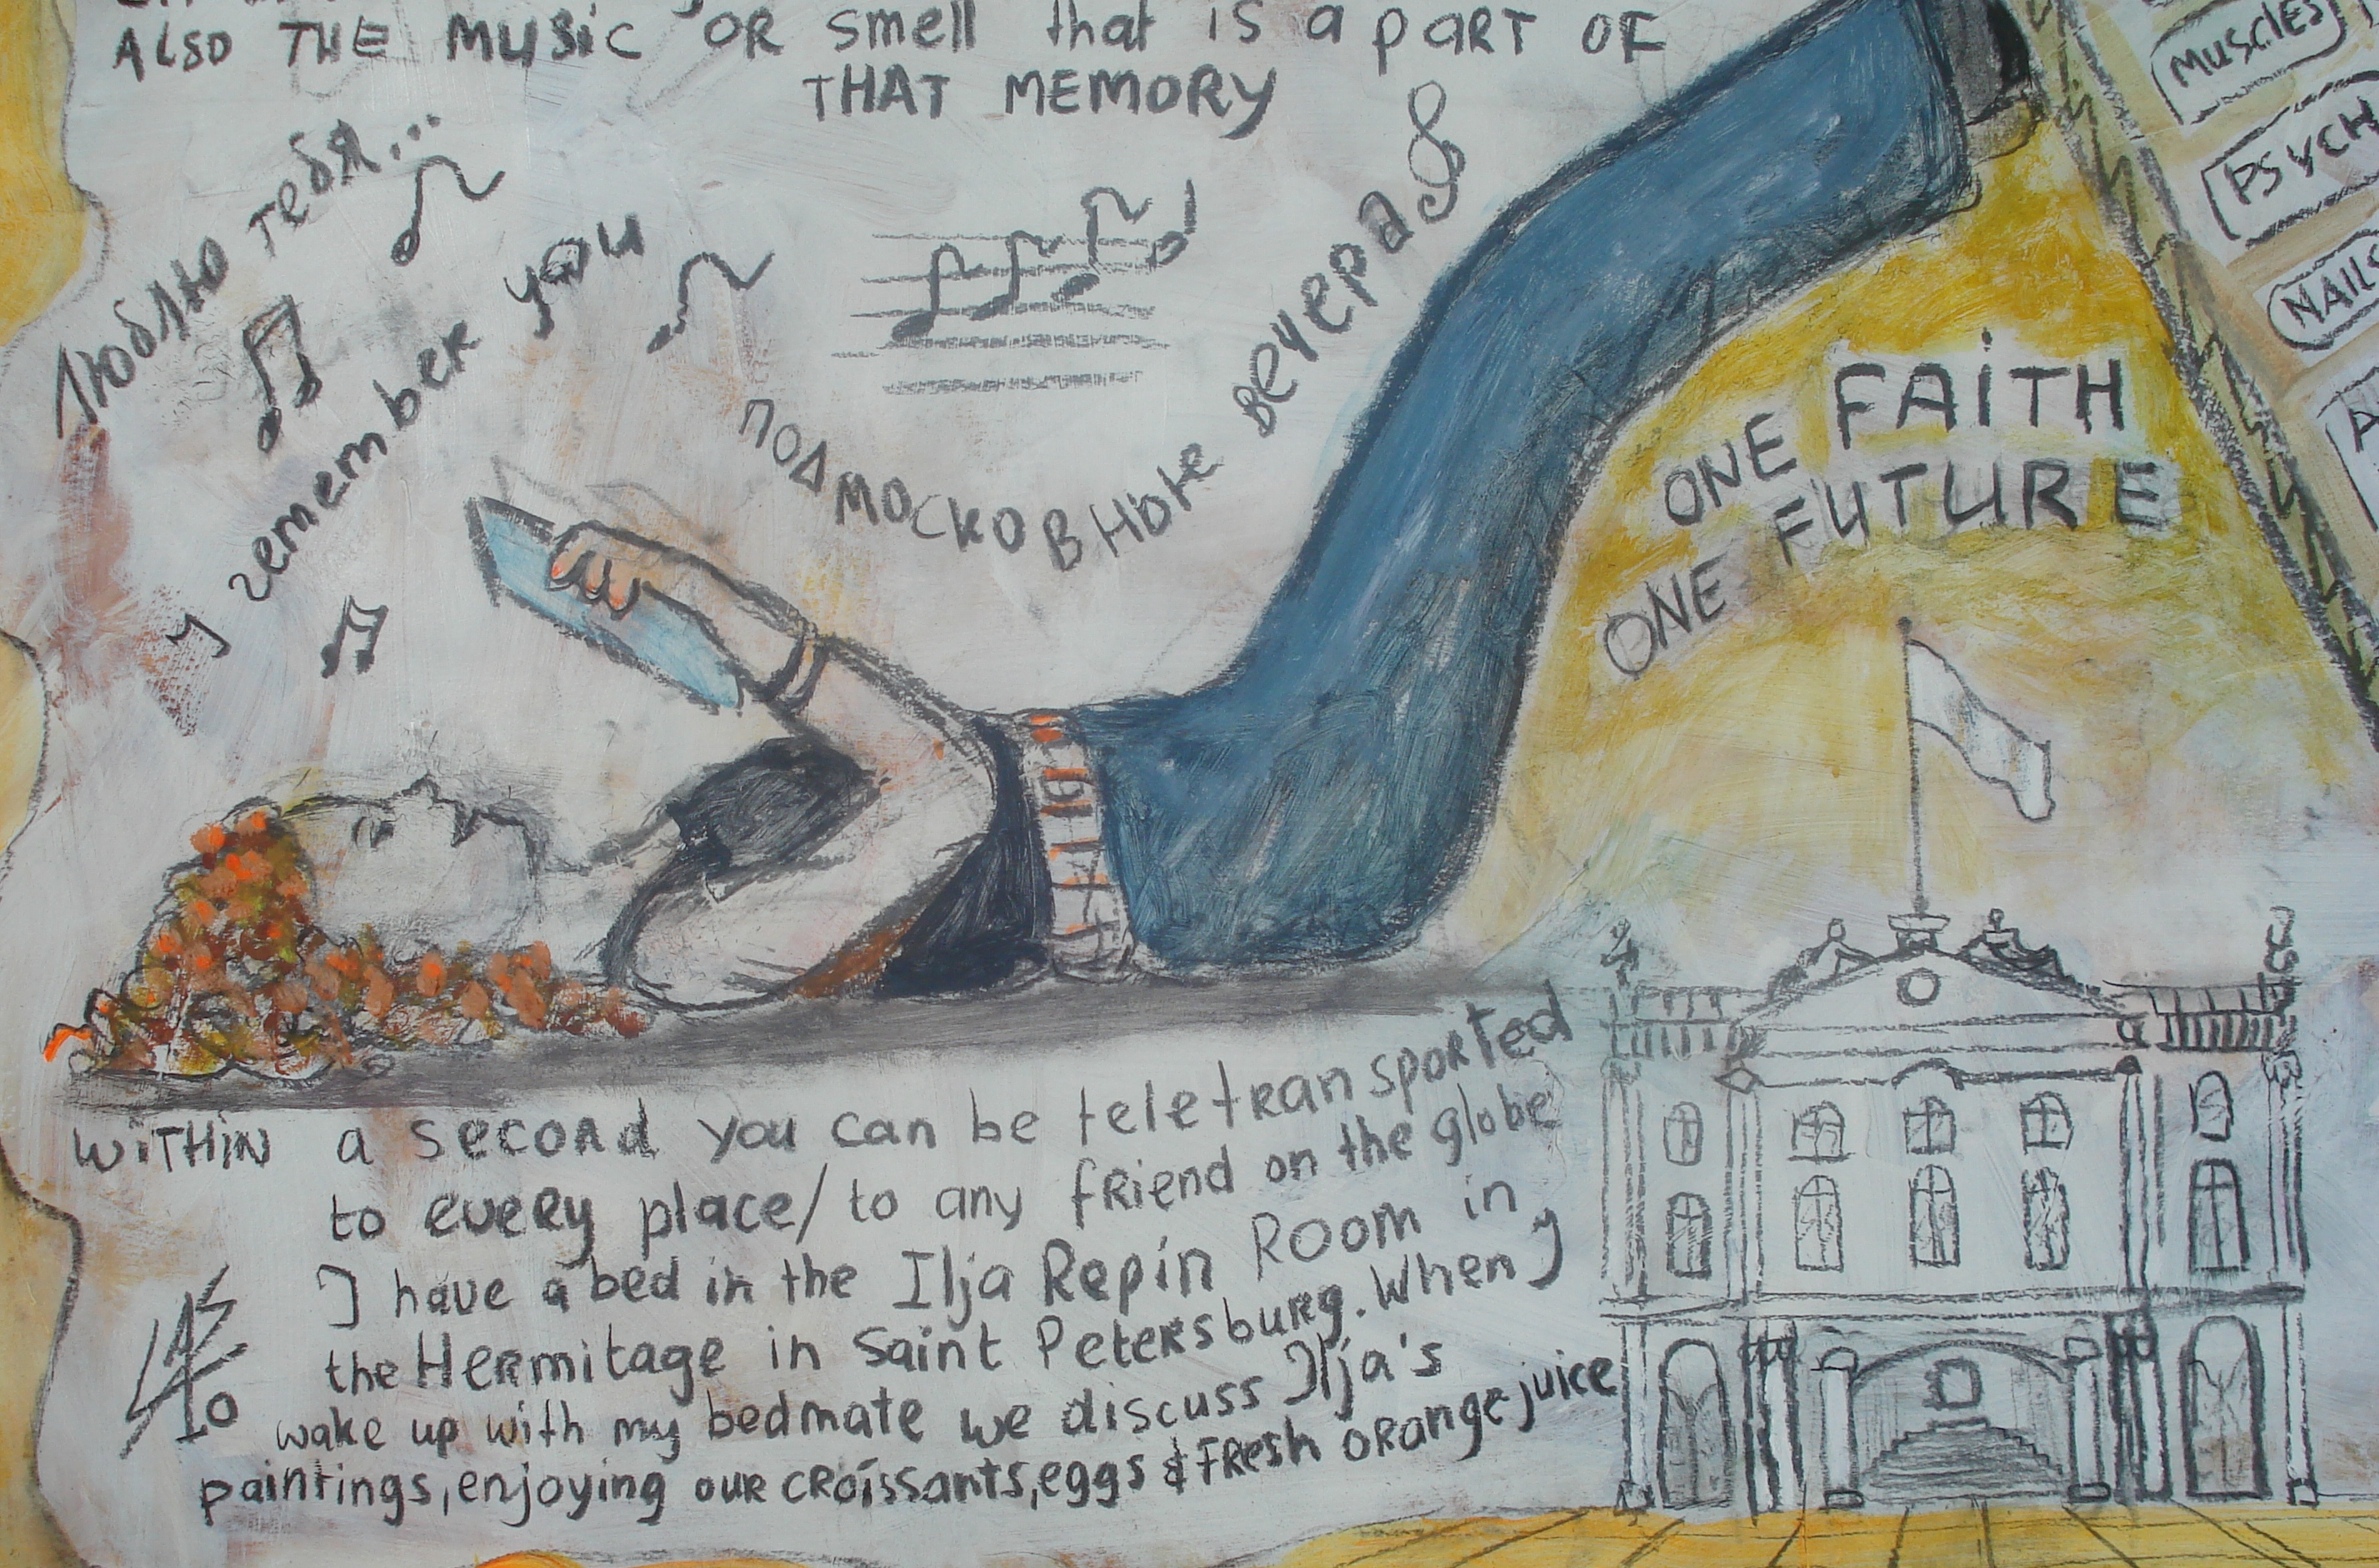 ALSO THE MUSIC OR smell that is a part OF
THAT MEMORY
Люблю тебя...
I remember you
ПОДМОСКОВНЫЕ ВЕЧЕРА
MUSCLES
PSYCH
NAILS
ONE FAITH
ONE FUTURE
WITHIN a second you can be teletransported
to every place/to any friend on the globe
I have a bed in the Ilja Repin Room in
the Hermitage in Saint Petersburg. When I
wake up with my bedmate we discuss Ilja's
paintings, enjoying our croissants, eggs & fresh orange juice